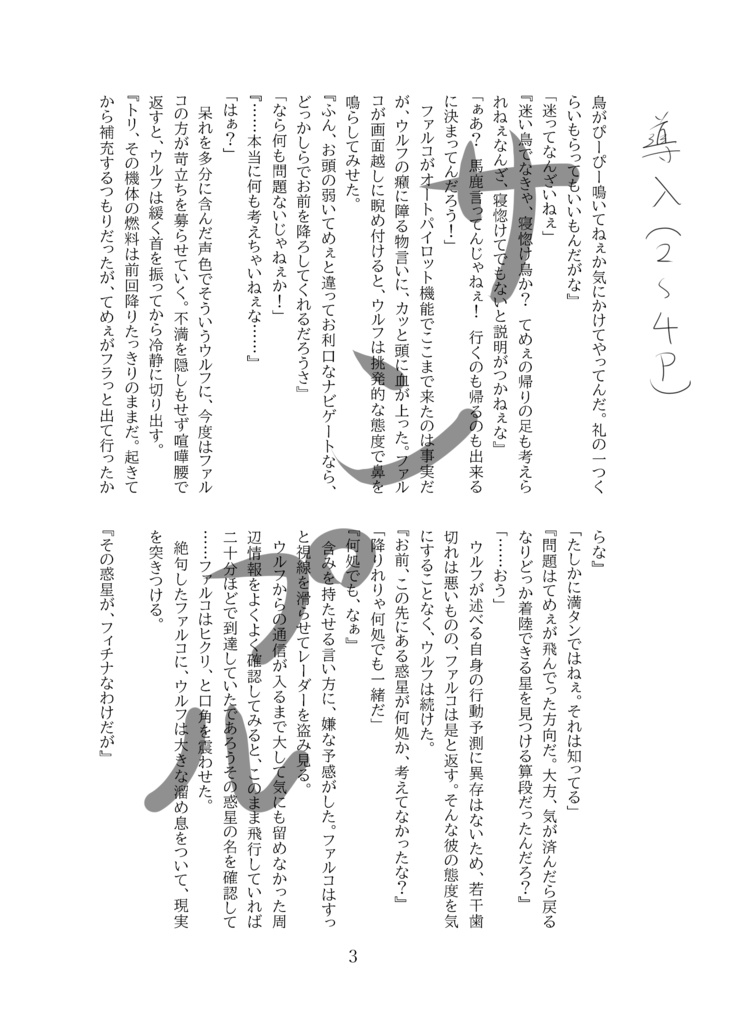 導入(2~4P)
鳥がぴーぴー鳴いてねぇか気にかけてやってんだ。礼の一つく
らいもらってもいいもんだがな』
「迷ってなんざいねぇ」
『迷い鳥でなきゃ、寝惚け鳥か? てめぇの帰りの足も考えら
れねぇなんざ、寝惚けてでもないと説明がつかねぇな』
「ぁあ? 馬鹿言ってんじゃねぇ! 行くのも帰るのも出来る
に決まってんだろう!」
ファルコがオートパイロット機能でここまで来たのは事実だ
が、ウルフの癪に障る物言いに、カッと頭に血が上った。ファル
コが画面越しに睨め付けると、ウルフは挑発的な態度で鼻を
鳴らしてみせた。
『ふん、お頭の弱いてめぇと違ってお利口なナビゲートなら、
どっかしらでお前を降ろしてくれるだろうさ』
「なら何も問題ないじゃねぇか!」
『……本当に何も考えちゃいねぇな……』
「はぁ?」
呆れを多分に含んだ声色でそういうウルフに、今度はファル
コの方が苛立ちを募らせていく。不満を隠しもせず喧嘩腰で
返すと、ウルフは緩く首を振ってから冷静に切り出す。
『トリ、その機体の燃料は前回降りたっきりのままだ。起きて
から補充するつもりだったが、てめぇがフラっと出て行ったか
らな』
「たしかに満タンではねぇ。それは知ってる」
『問題はてめぇが飛んでった方向だ。大方、気が済んだら戻る
なりどっか着陸できる星を見つける算段だったんだろ?』
「……おう」
ウルフが述べる自身の行動予測に異存はないため、若干歯
切れは悪いものの、ファルコは是と返す。そんな彼の態度を気
にすることなく、ウルフは続けた。
『お前、この先にある惑星が何処か、考えてなかったな?』
「降りれりゃ何処でも一緒だ」
『何処でも、なぁ』
含みを持たせる言い方に、嫌な予感がした。ファルコはすっ
と視線を滑らせてレーダーを盗み見る。
ウルフからの通信が入るまで大して気にも留めなかった周
辺情報をよくよく確認してみると、このまま飛行していれば
二十分ほどで到達していたであろうその惑星の名を確認して
……ファルコはヒクリ、と口角を震わせた。
絶句したファルコに、ウルフは大きな溜め息をついて、現実
を突きつける。
『その惑星が、フィチナなわけだが』
サンプル
3